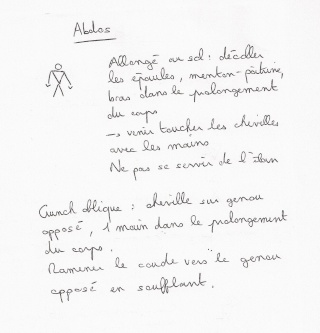 Abdos
Allongé au sol : décoller
les épaules, menton-poitrine,
bras dans le prolongement
du corps
→ venir toucher les chevilles
avec les mains
Ne pas se servir de l'élan
Crunch oblique : cheville sur genou
opposé, 1 main dans le prolongement
du corps.
Ramener le coude vers le genou
opposé en soufflant.